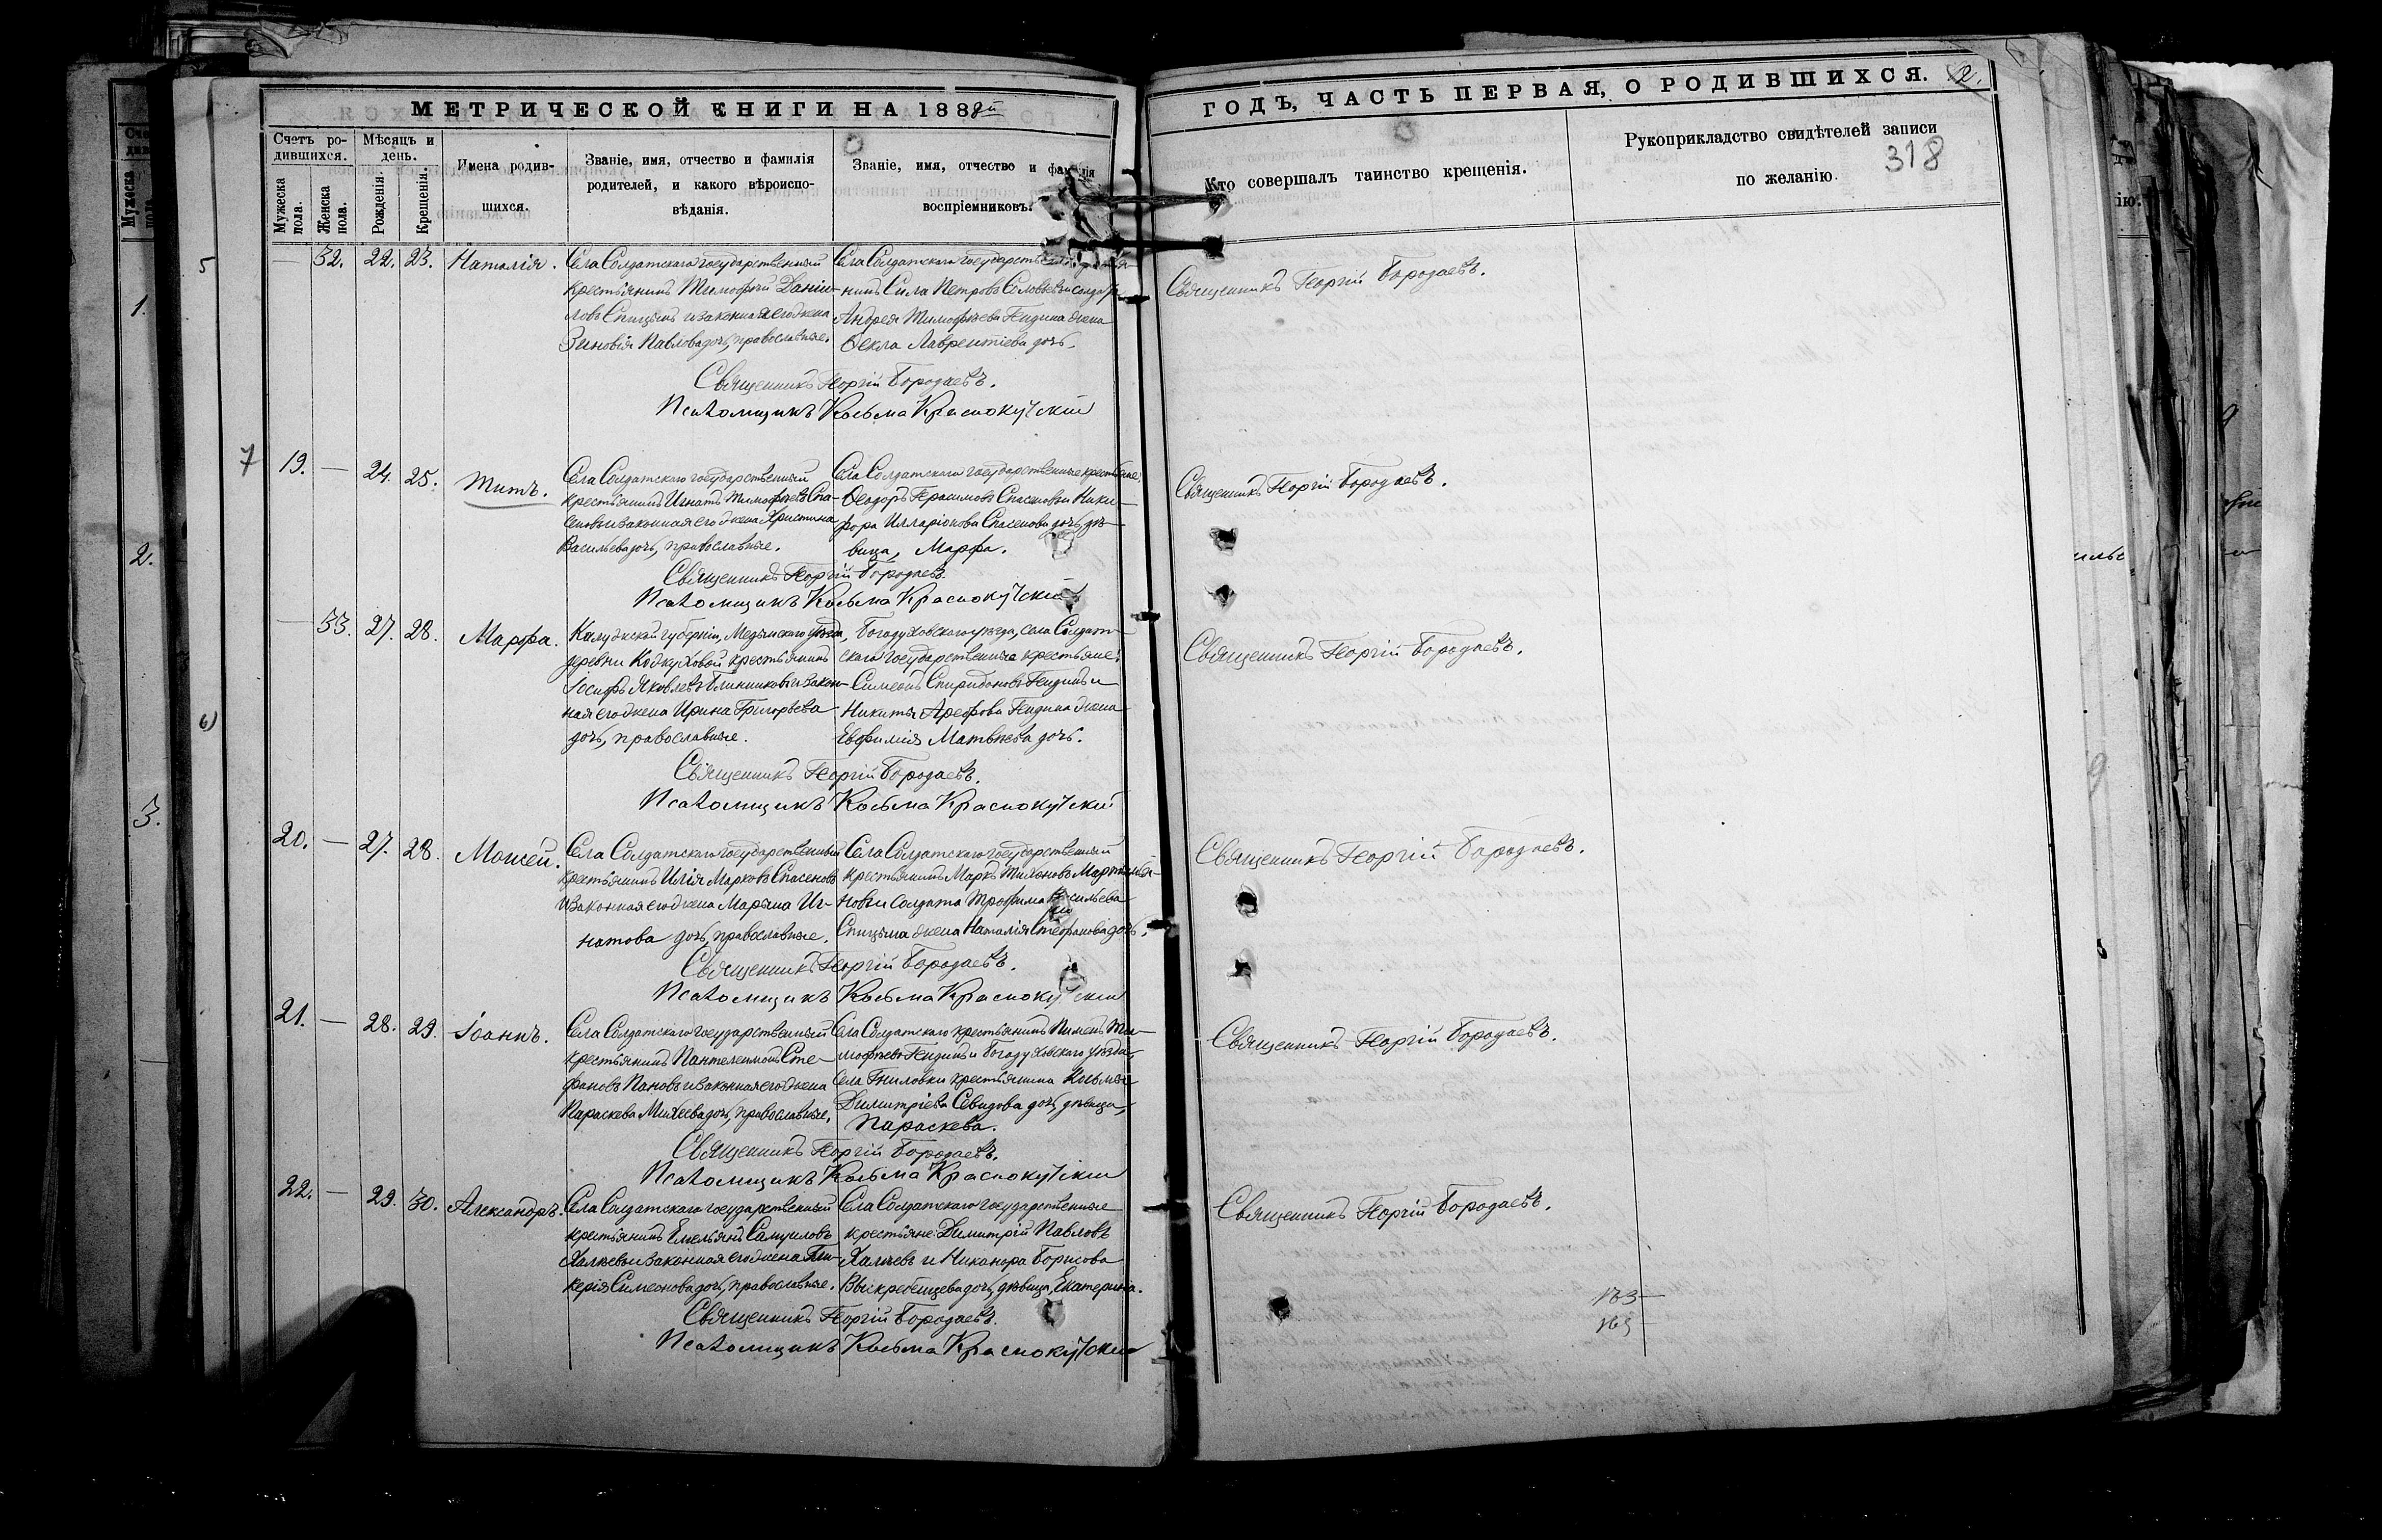 МЕТРИЧЕСКОЙ КНИГИ НА 1888й
Счетъ ро-
дившихся.
Мѣсяцъ и
день.
Мужеска
пола.
Женска
пола.
Рожденія.
Крещенія.
Имена родив-
шихся.
Званіе, имя, отчество и фамилія
родителей, и какого вѣроиспо-
вѣданія.
Званіе, имя, отчество и фамилія
воспріемниковъ.
ГОДЪ, ЧАСТЬ ПЕРВАЯ, О РОДИВШИХСЯ.
2.
Кто совершалъ таинство крещенія.
Рукоприкладство свидѣтелей записи
по желанію.
318
5
— 32. 22. 23. Наталія.
Села Солдатскаго государственный
крестьянинъ Тимофей Даніи-
ловъ Спицынъ и законная его жена
Зиновія Павлова дочь, православные.
Села Солдатскаго государственный
нинъ Сила Петровъ и солдата
Андрея Тимофѣева Гидина жена
Ѳекла Лаврентіева дочь.
Священникъ Георгій Бородаевъ.
Священникъ Георгій Бородаевъ.
Псаломщикъ Косьма Краснокутскій
7
19. — 24. 25. Титъ.
Села Солдатскаго государственный
крестьянинъ Игнатъ Тимофеевъ Спа-
сеновъ и законная его жена Христина
Васильева дочь, православные.
Села Солдатскаго государственные крестьяне:
Ѳеодоръ Герасимовъ Спасеновъ и Ники-
фора Илларіонова Спасенова дочь, дѣ-
вица, Марфа.
Священникъ Георгій Бородаевъ.
Священникъ Георгій Бородаевъ
Псаломщикъ Косьма Краснокутскій
6)
— 33. 27. 28. Марфа.
Калужской губерніи, Медынскаго уѣзда,
деревни Кожуховой крестьянинъ
Іосифъ Яковлевъ Блинниковъ и закон-
ная его жена Ирина Григорьева
дочь, православные.
Богодуховскаго уѣзда, села Солдат-
скаго государственные крестьяне:
Симеонъ Спиридоновъ Гидинъ и
Никиты Арефова Гидина жена
Евфимія Матвѣева дочь.
Священникъ Георгій Бородаевъ.
Священникъ Георгій Бородаевъ.
Псаломщикъ Косьма Краснокутскій
20. — 27. 28. Моисей.
Села Солдатскаго государственный
крестьянинъ Илія Марковъ Спасеновъ
и законная его жена Маріна Иг-
натова дочь, православные.
Села Солдатскаго государственный
крестьянинъ Маркъ Тихоновъ Мартынья-
новъ и солдата Трофима Васильева
Спицына жена Наталія Стефанова дочь.
Священникъ Георгій Бородаевъ.
Священникъ Георгій Бородаевъ.
Псаломщикъ Косьма Краснокутскій
21. — 28. 29. Іоаннъ.
Села Солдатскаго государственный
крестьянинъ Пантелеимонъ Сте-
фановъ Пановъ и законная его жена
Параскева Михеева дочь, православные.
Села Солдатскаго крестьянинъ Пименъ Ти-
мофѣевъ Гидинъ и Богодуховскаго уѣзда,
села Гниловки крестьянина Косьмы
Димитріева Севидова дочь, дѣвица,
Параскева.
Священникъ Георгій Бородаевъ.
Священникъ Георгій Бородаевъ.
Псаломщикъ Косьма Краснокутскій
22. — 29. 30. Александръ.
Села Солдатскаго государственный
крестьянинъ Емельянъ Самуиловъ
Халѣевъ и законная его жена Гли-
керія Симеонова дочь, православные.
Села Солдатскаго государственные
крестьяне: Димитрій Павловъ
Халѣевъ и Никанора Борисова
Выскребенцева дочь, дѣвица, Екатерина.
Священникъ Георгій Бородаевъ.
Священникъ Георгій Бородаевъ.
Псаломщикъ Косьма Краснокутскій
1.
2.
3.